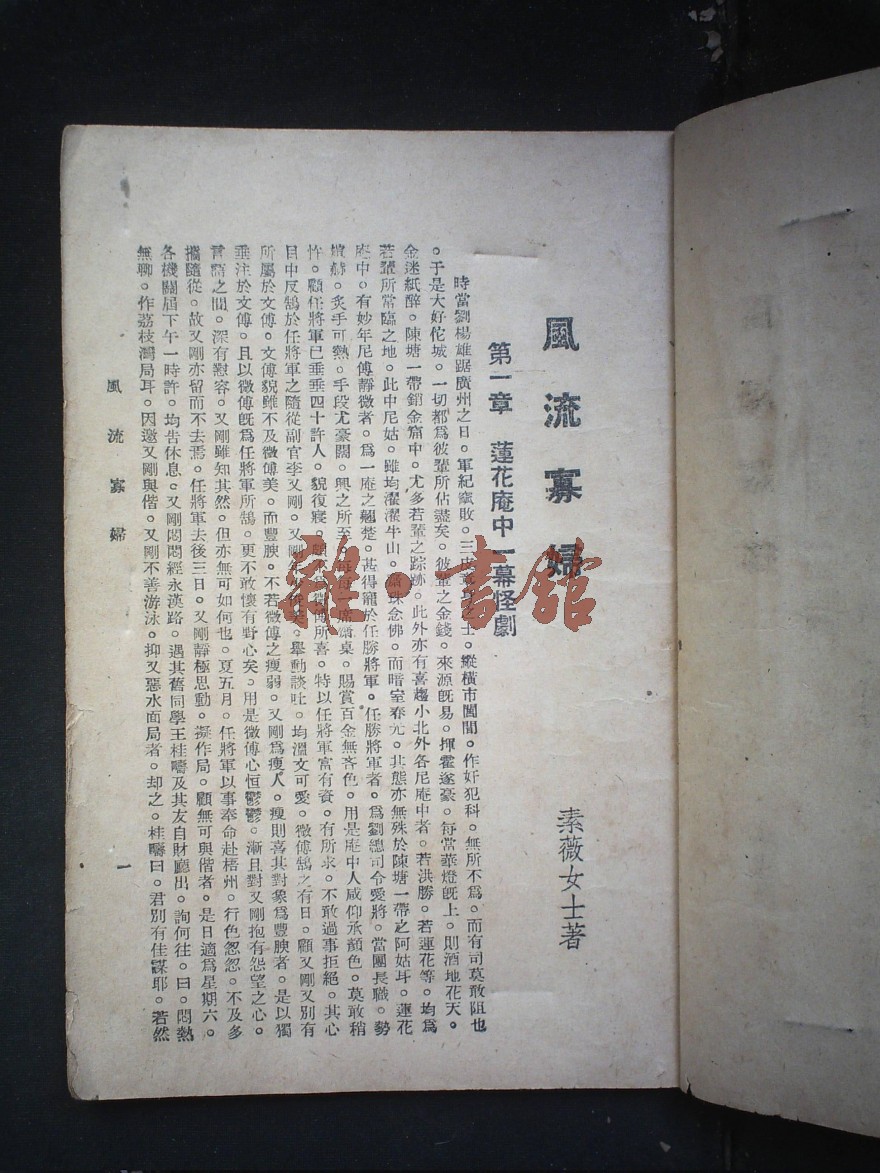 風流寡婦
素薇女士著
第一章 蓮花庵中一幕怪劇
時當劉楊雄踞廣州之日。軍紀窳敗。三 之士。縱橫市闤闠。作奸犯科。無所不爲。而有司莫敢阻也
。于是大好佗城。一切都爲彼輩所佔盡矣。彼輩之金錢。來源旣易。揮霍遂豪。每當華燈旣上。則酒地花天。
金迷紙醉。陳塘一帶銷金窟中。尤多若輩之踪跡。此外亦有喜趨小北外各尼庵中者。若洪勝。若蓮花等。均爲
若輩所常臨之地。此中尼姑。雖均濯濯牛山。 珠念佛。而暗室春光。其態亦無殊於陳塘一帶之阿姑耳。蓮花
庵中。有妙年尼傅靜微者。爲一庵之翹楚。甚得寵於任勝將軍。任勝將軍者。爲劉總司令愛將。當團長職。勢
燄赫。炙手可熱。手段尤豪闊。興之所至。每 一席 桌。賜賞百金無吝色。用是庵中人咸仰承顏色。莫敢稍
忤。顧任將軍已垂垂四十許人。貌復寢。 爲微傅所喜。特以任將軍富有資。有所求。不敢過事拒絕。其心
目中反鵠於任將軍之隨從副官李又剛。又剛年 美。舉動談吐。均溫文可愛。微傅鵠之有日。顧又剛又別有
所屬於文傅。文傅貌雖不及微傅美。而豐腴。不若微傅之瘦弱。又剛爲瘦人。瘦則喜其對象爲豐腴者。是以獨
垂注於文傅。且以微傅旣爲任將軍所鵠。更不敢懷有野心矣。用是微傅心恒鬱鬱。漸且對又剛抱有怨望之心。
言語之間。深有懟容。又剛雖知其然。但亦無可如何也。夏五月。任將軍以事奉命赴梧州。行色忽忽。不及多
攜隨從。故又剛亦留而不去焉。任將軍去後三日。又剛靜極思動。擬作局。顧無可與偕者。是日適爲星期六。
各機關屆下午一時許。均告休息。又剛悶悶經永漢路。遇其舊同學王桂疇及其友自財廳出。詢何往。曰。悶熱
無聊。作荔枝灣局耳。因邀又剛與偕。又剛不善游泳。抑又惡水面局者。却之。桂疇曰。君別有佳謀耶。若然
風流寡婦
一
雜·書館